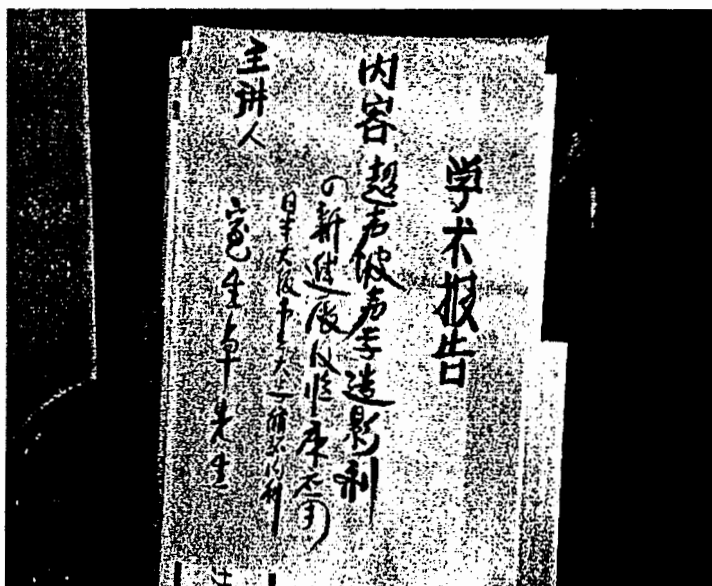 学术报告
内容 超声波声学造影剂
の新进展及临床应用
日本大阪市立大 内科
主讲人 室生卓先生